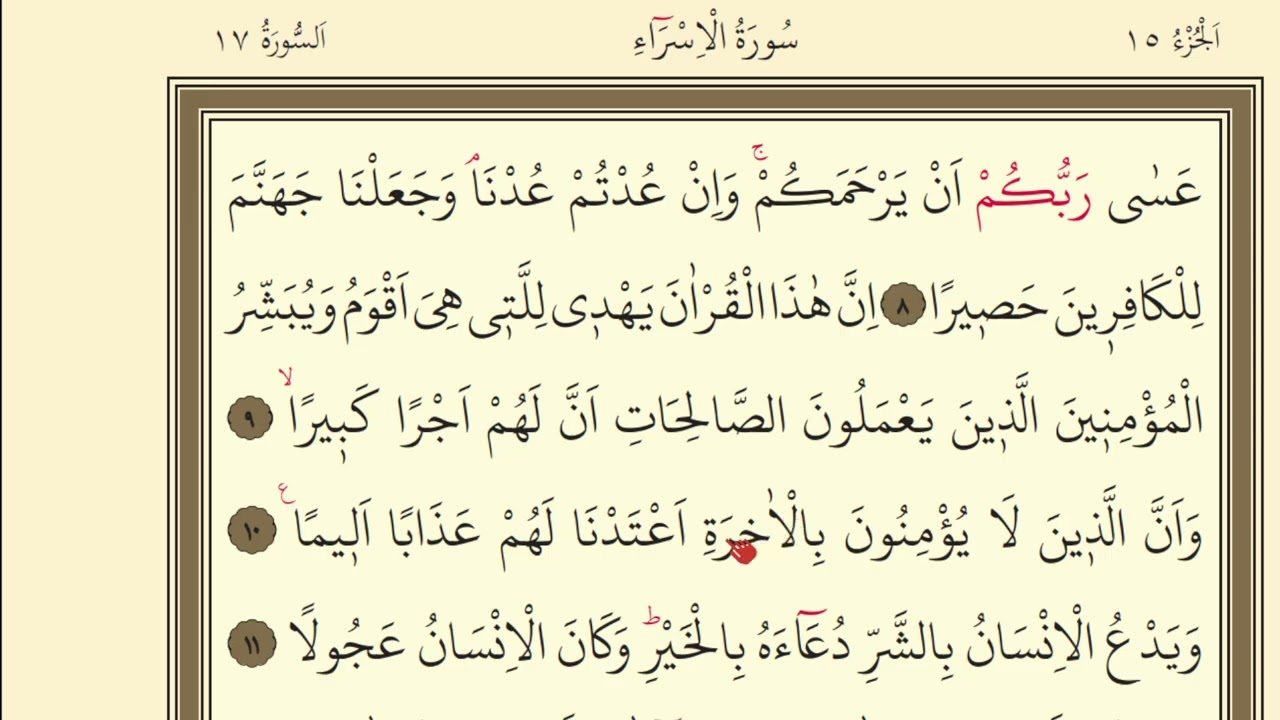 اَلْجُزْءُ ١٥ سُورَةُ الْاِسْرَٓاءِ اَلسُّورَةُ ١٧
عَسٰى رَبُّكُمْ اَنْ يَرْحَمَكُمْۚ وَاِنْ عُدْتُمْ عُدْنَاۢ وَجَعَلْنَا جَهَنَّمَ
لِلْكَافِر۪ينَ حَص۪يرًا ٨ اِنَّ هٰذَا الْقُرْاٰنَ يَهْد۪ي لِلَّت۪ي هِيَ اَقْوَمُ وَيُبَشِّرُ
الْمُؤْمِن۪ينَ الَّذ۪ينَ يَعْمَلُونَ الصَّالِحَاتِ اَنَّ لَهُمْ اَجْرًا كَب۪يرًاۙ ٩
وَاَنَّ الَّذ۪ينَ لَا يُؤْمِنُونَ بِالْاٰخِرَةِ اَعْتَدْنَا لَهُمْ عَذَابًا اَل۪يمًا ع ١٠
وَيَدْعُ الْاِنْسَانُ بِالشَّرِّ دُعَٓاءَهُ بِالْخَيْرِۜ وَكَانَ الْاِنْسَانُ عَجُولًا ١١